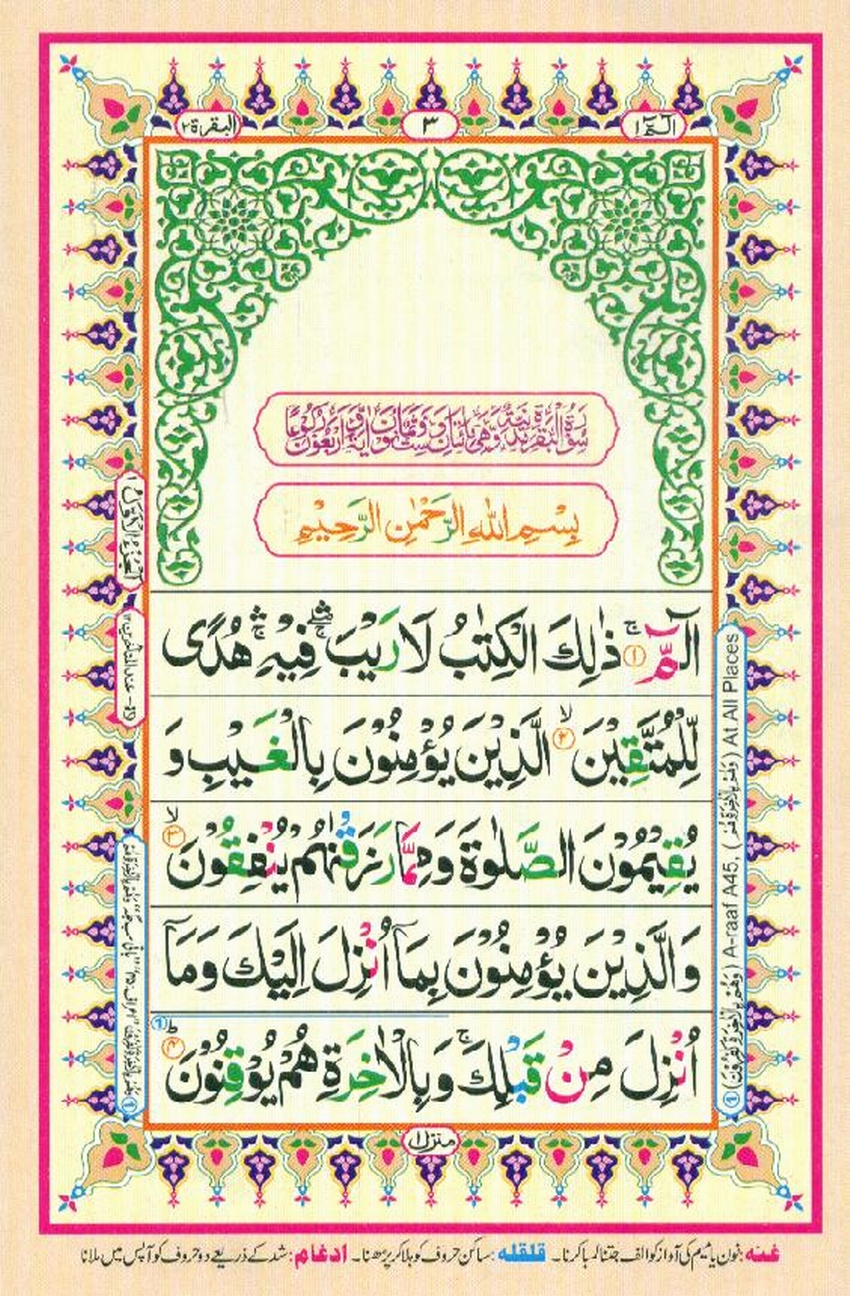 الٓمّٓ ۱
۳
البقرة ۲
سُوْرَةُ الْبَقَرَةِ مَدَنِيَّةٌ وَّهِيَ مِائَتَانِ وَسِتٌّ وَّثَمَانُوْنَ اٰيَةً وَّاَرْبَعُوْنَ رُكُوْعًا
بِسْمِ اللّٰهِ الرَّحْمٰنِ الرَّحِيْمِ
الٓمّٓ ۚ﴿۱﴾ ذٰلِكَ الْكِتٰبُ لَا رَيْبَ ۛۖۚ فِيْهِ ۛۚ هُدًى
لِّلْمُتَّقِيْنَ ۙ﴿۲﴾ الَّذِيْنَ يُؤْمِنُوْنَ بِالْغَيْبِ وَ
يُقِيْمُوْنَ الصَّلٰوةَ وَمِمَّا رَزَقْنٰهُمْ يُنْفِقُوْنَ ۙ﴿۳﴾
وَالَّذِيْنَ يُؤْمِنُوْنَ بِمَآ اُنْزِلَ اِلَيْكَ وَمَآ
اُنْزِلَ مِنْ قَبْلِكَ ۚ وَبِالْاٰخِرَةِ هُمْ يُوْقِنُوْنَ ؕ﴿۴﴾ ①
① (وَهُمْ بِالْاٰخِرَةِ كٰفِرُوْنَ) A-raaf A45, (وَهُمْ بِالْاٰخِرَةِ هُمْ) At All Places
منزل ۱
غنہ: نون یا میم کی آواز کو الف جتنا لمبا کرنا۔ قلقلہ: ساکن حروف کو ہلا کر پڑھنا۔ ادغام: شد کے ذریعے دو حروف کو آپس میں ملانا